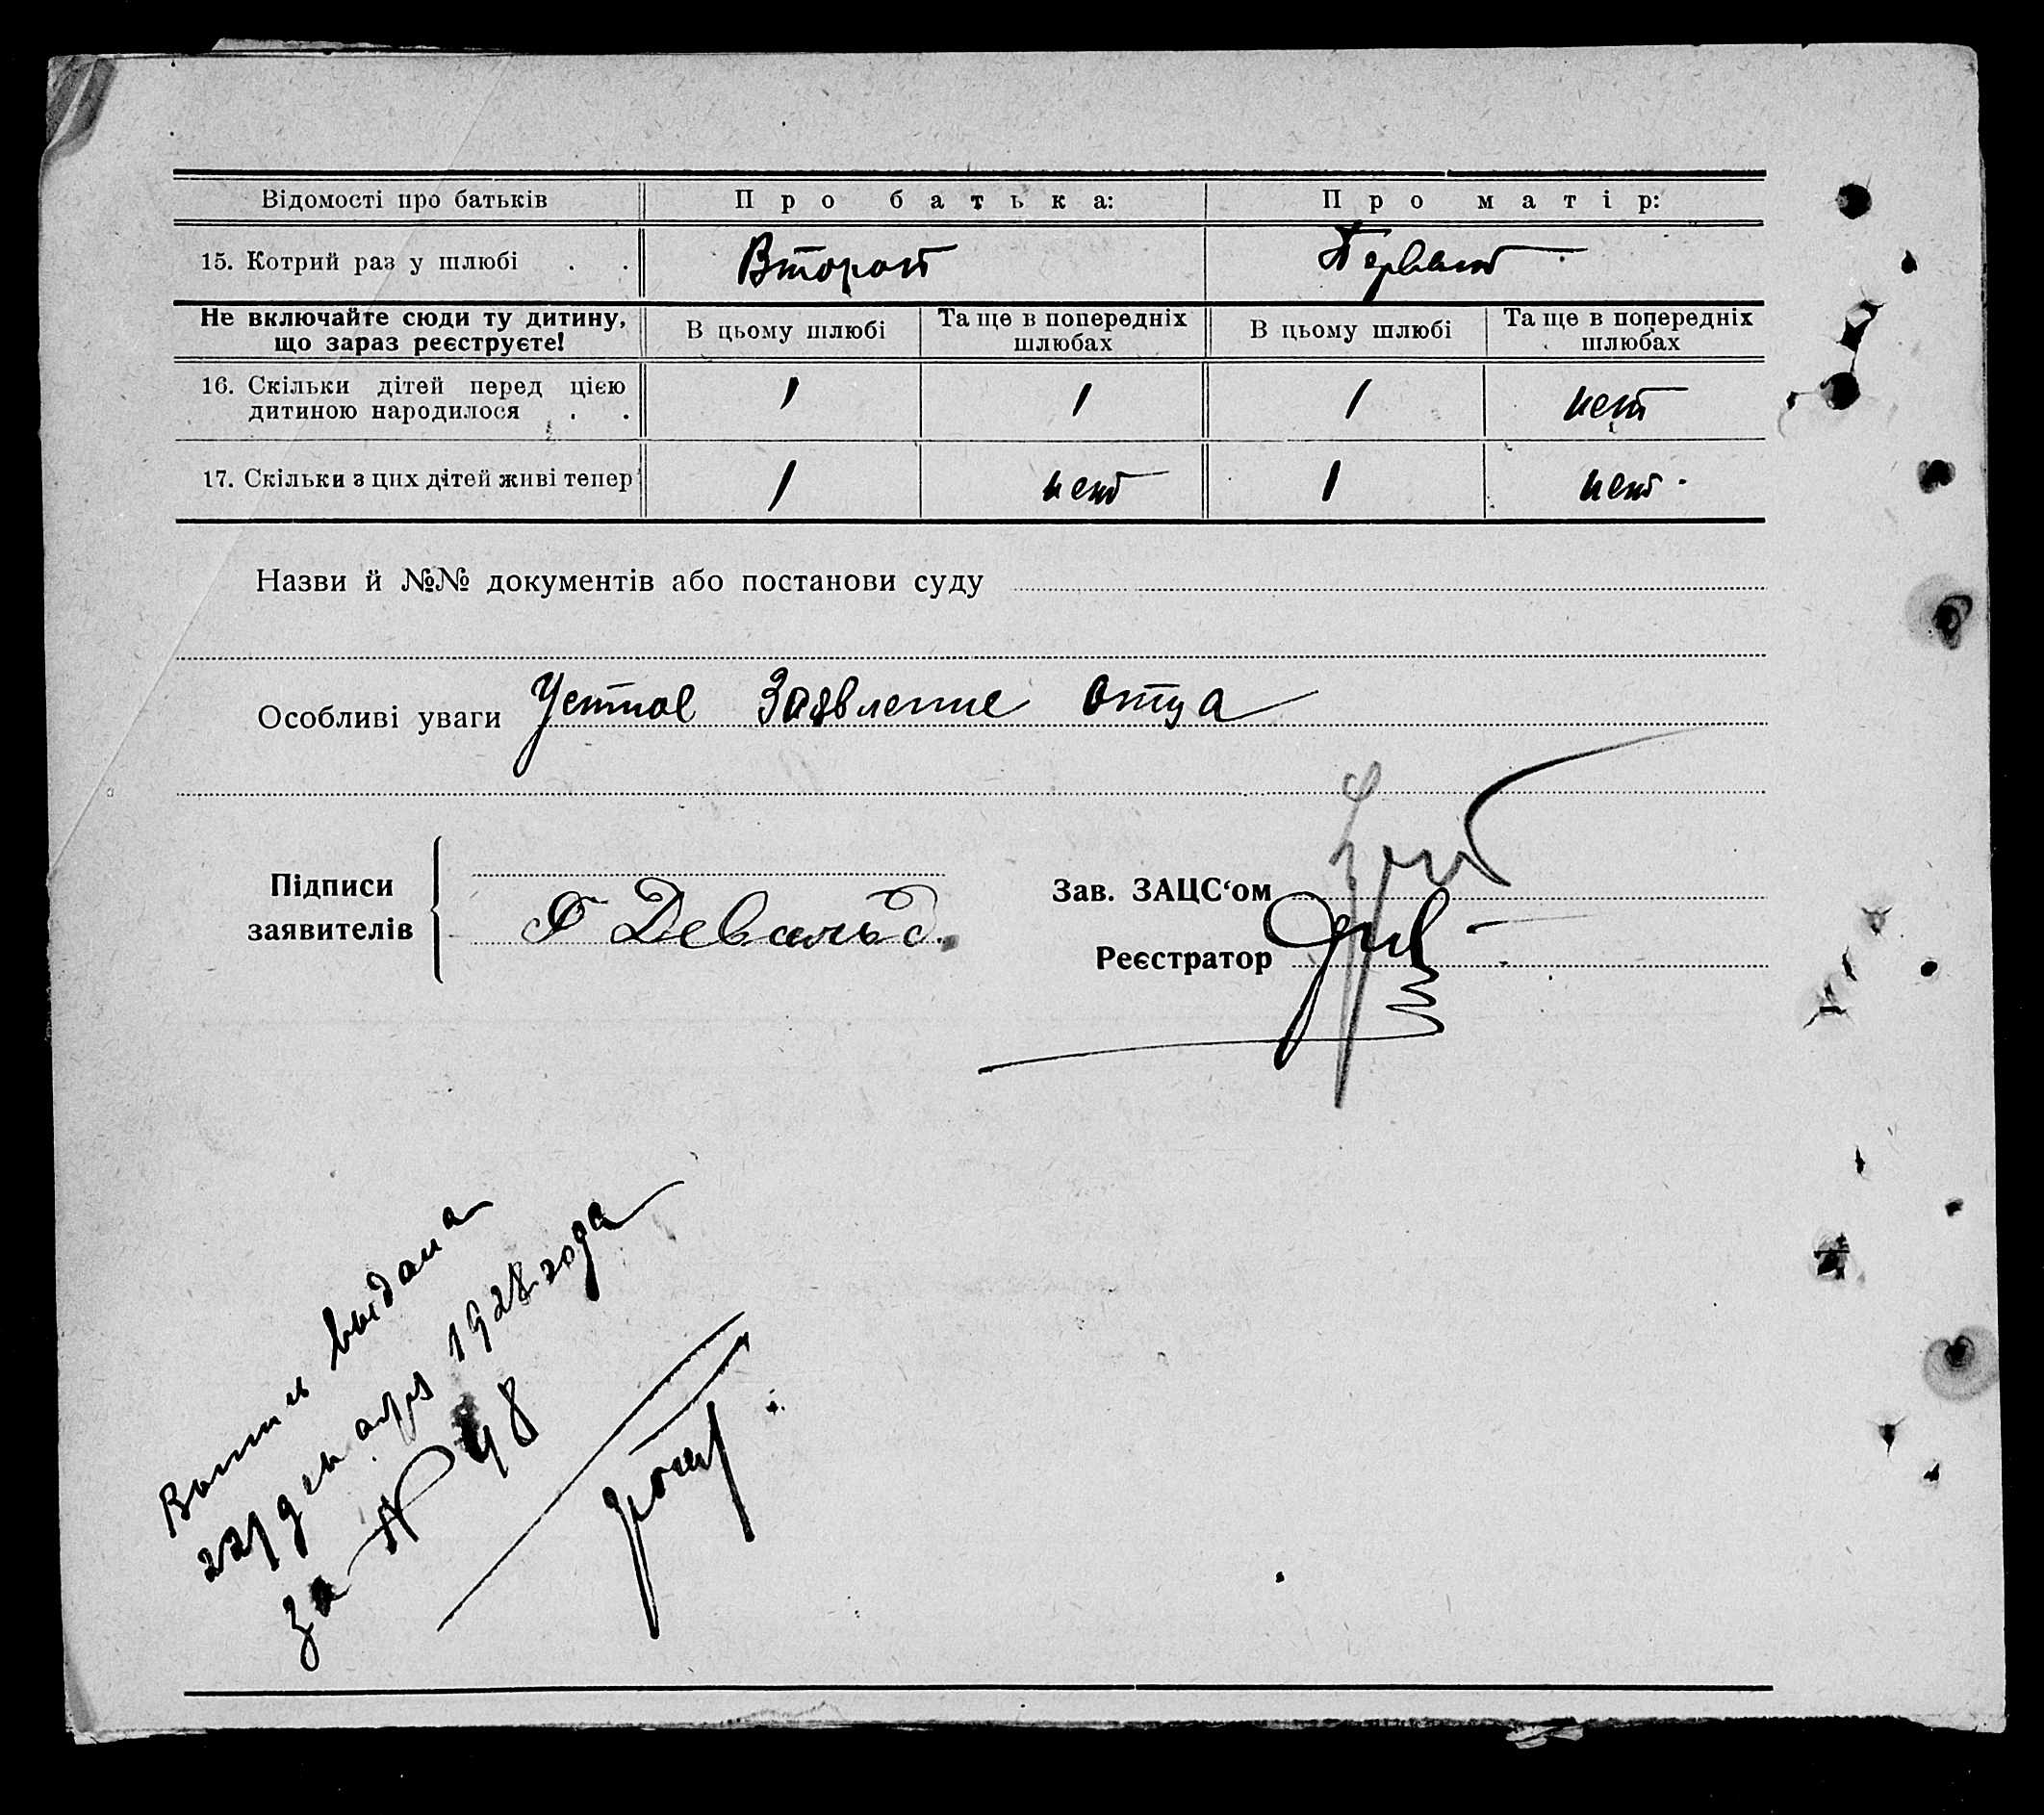 Відомості про батьків Про батька: Про матір:
15. Котрий раз у шлюбі . . Второй Первый
Не включайте сюди ту дитину, що зараз реєструєте! В цьому шлюбі Та ще в попередніх шлюбах В цьому шлюбі Та ще в попередніх шлюбах
16. Скільки дітей перед цією дитиною народилося . . 1 1 1 нет
17. Скільки з цих дітей живі тепер 1 нет 1 нет
Назви й №№ документів або постанови суду
Особливі уваги Устное Заявление отца
Підписи заявителів
Девальд
Зав. ЗАЦС‘ом
Реєстратор
Выпись выдана
1928 года
за № 48